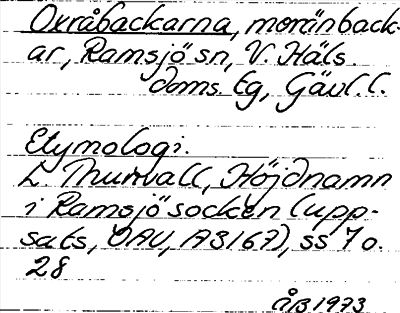 Oxråbackarna, moränback-
ar, Ramsjö sn, V. Häls.
doms. Eg, Gävl. l.
Etymologi.
L. Thunvall, Höjdnamn
i Ramsjö socken (upp-
sats, OAU, A3167), ss 7 o.
28
ÅB 1973